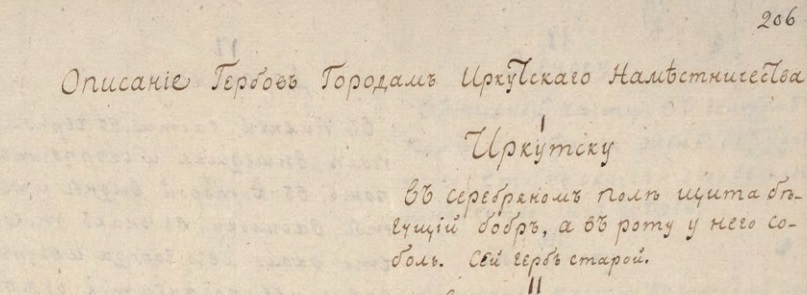 206
Описаніе Гербовъ Городамъ Иркутскаго Намѣстничества
I
Иркутску
Въ серебреномъ полѣ щита бѣ-
гущій бобръ, а въ роту у него со-
боль. Сей гербъ старой.
II